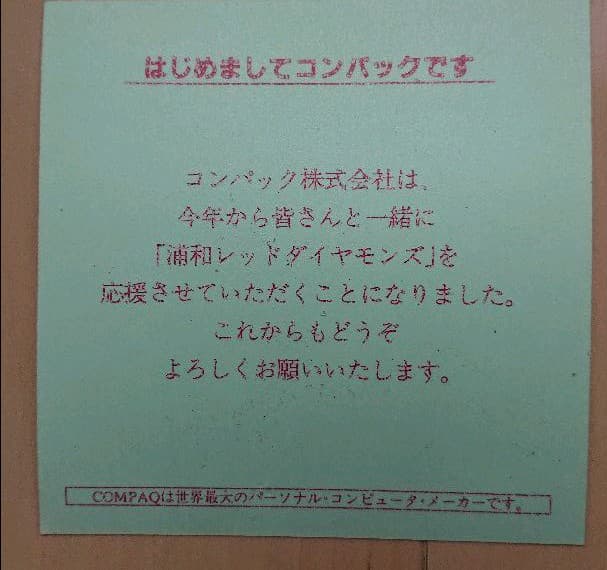 はじめましてコンパックです
コンパック株式会社は、
今年から皆さんと一緒に
「浦和レッドダイヤモンズ」を
応援させていただくことになりました。
これからもどうぞ
よろしくお願いいたします。
COMPAQは世界最大のパーソナル・コンピュータ・メーカーです。